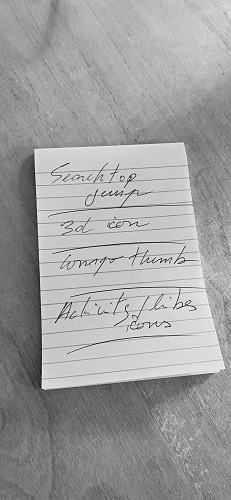 Search top
jump
3d icon
thumb
Activity / likes
icons